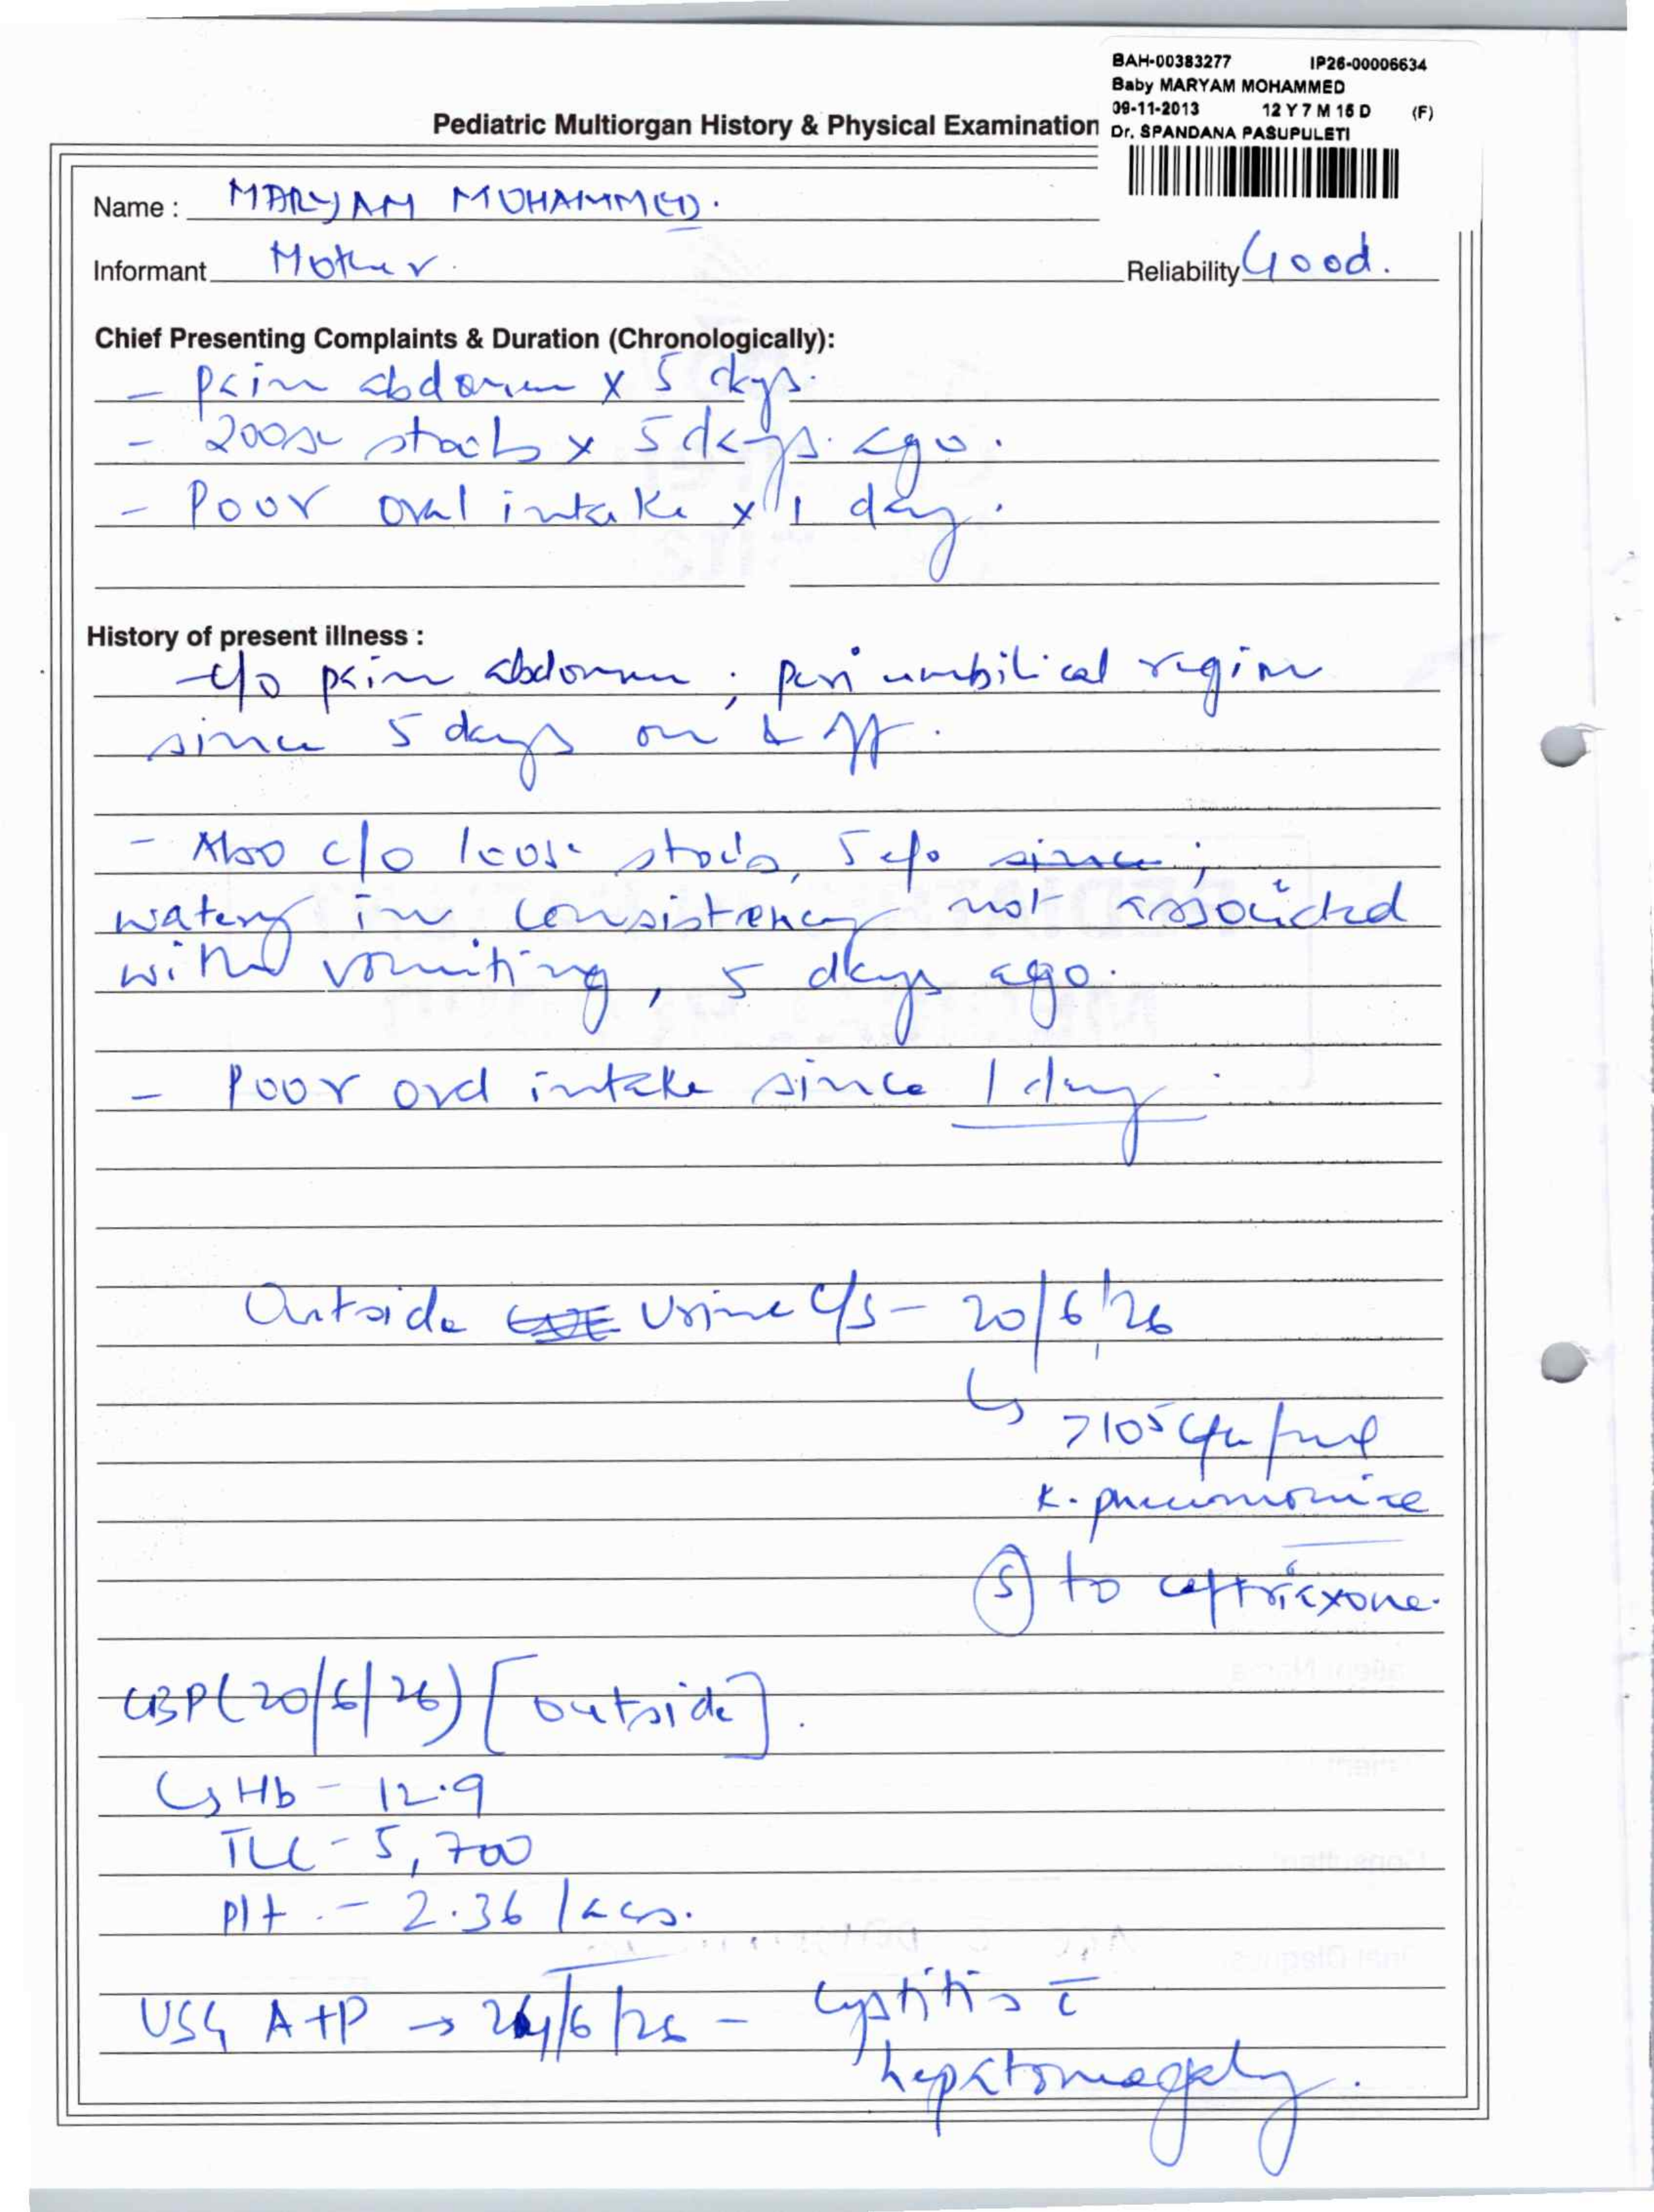 BAH-00383277 IP26-00006634
Baby MARYAM MOHAMMED
09-11-2013 12 Y 7 M 15 D (F)
Dr. SPANDANA PASUPULETI
Pediatric Multiorgan History & Physical Examination
Name : MARYAM MOHAMMED.
Informant Mother. Reliability Good.
Chief Presenting Complaints & Duration (Chronologically):
- Pain abdomen x 5 days.
- loose stools x 5 days ago.
- Poor oral intake x 1 day.
History of present illness :
- c/o pain abdomen ; peri umbilical region
since 5 days on & off.
- Also c/o loose stools, 5 ;
watery in consistency not associated
with vomiting, 5 days ago.
- Poor oral intake since 1 day.
Outside Urine C/S - 20/6/26
↳ >10⁵ cfu/ml
K. pneumoniae
Ⓢ to ceftriaxone.
CBP (20/6/26) [outside].
↳ Hb - 12.9
TLC - 5,700
Plt. - 2.36 lacs.
USG A+P → /6/26 - Cystitis c̄
hepatomegaly.